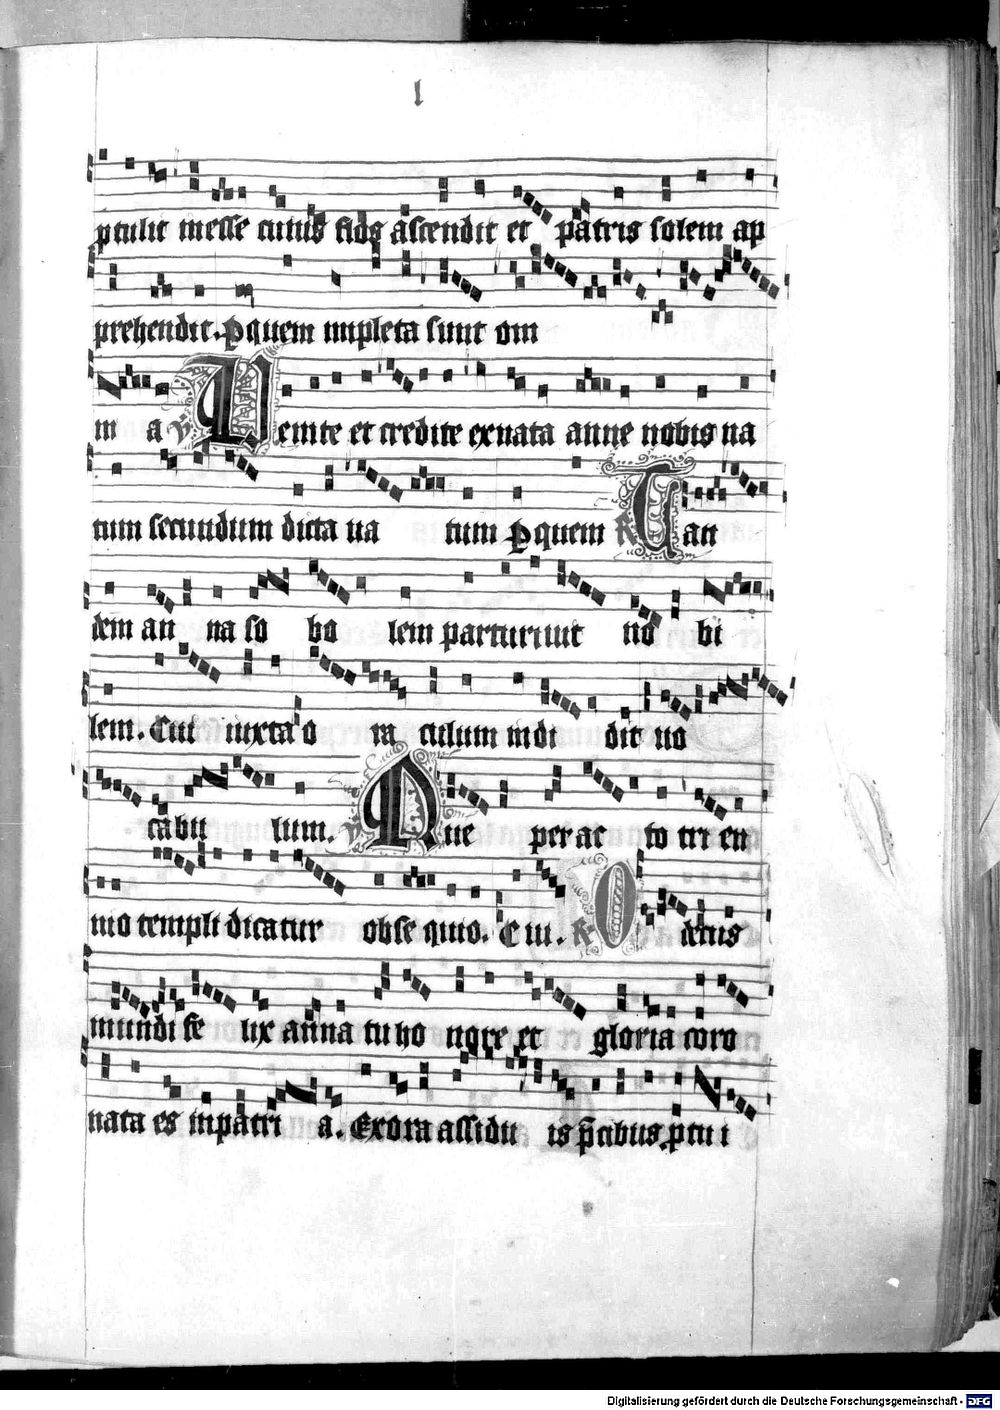 l
ptulit messe cuius fides ascendit et patris solem ap
prehendit. Per quem impleta sunt om
ni a V Venite et credite ex nata anne nobis na
tum secundum dicta va tum Per quem R Tan
dem an na so bo lem parturiuit no bi
lem. Cui iuxta o ra culum indi dit uo
cabu lum. V Que per ac to tri en
nio templi dicatur obse quio. Cui. R O decus
mundi fe lix anna tu ho nore et gloria coro
nata es in patri a. Exora assidu is p̄cibus. ptu i
Digitalisierung gefördert durch die Deutsche Forschungsgemeinschaft - DFG